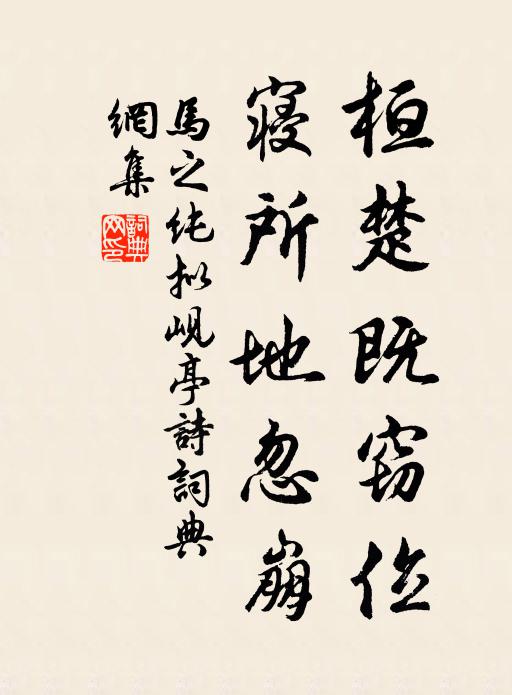 桓楚既窃位
寝所地忽崩
馬之纯拟峴亭詩詞典
網集
詞典网印